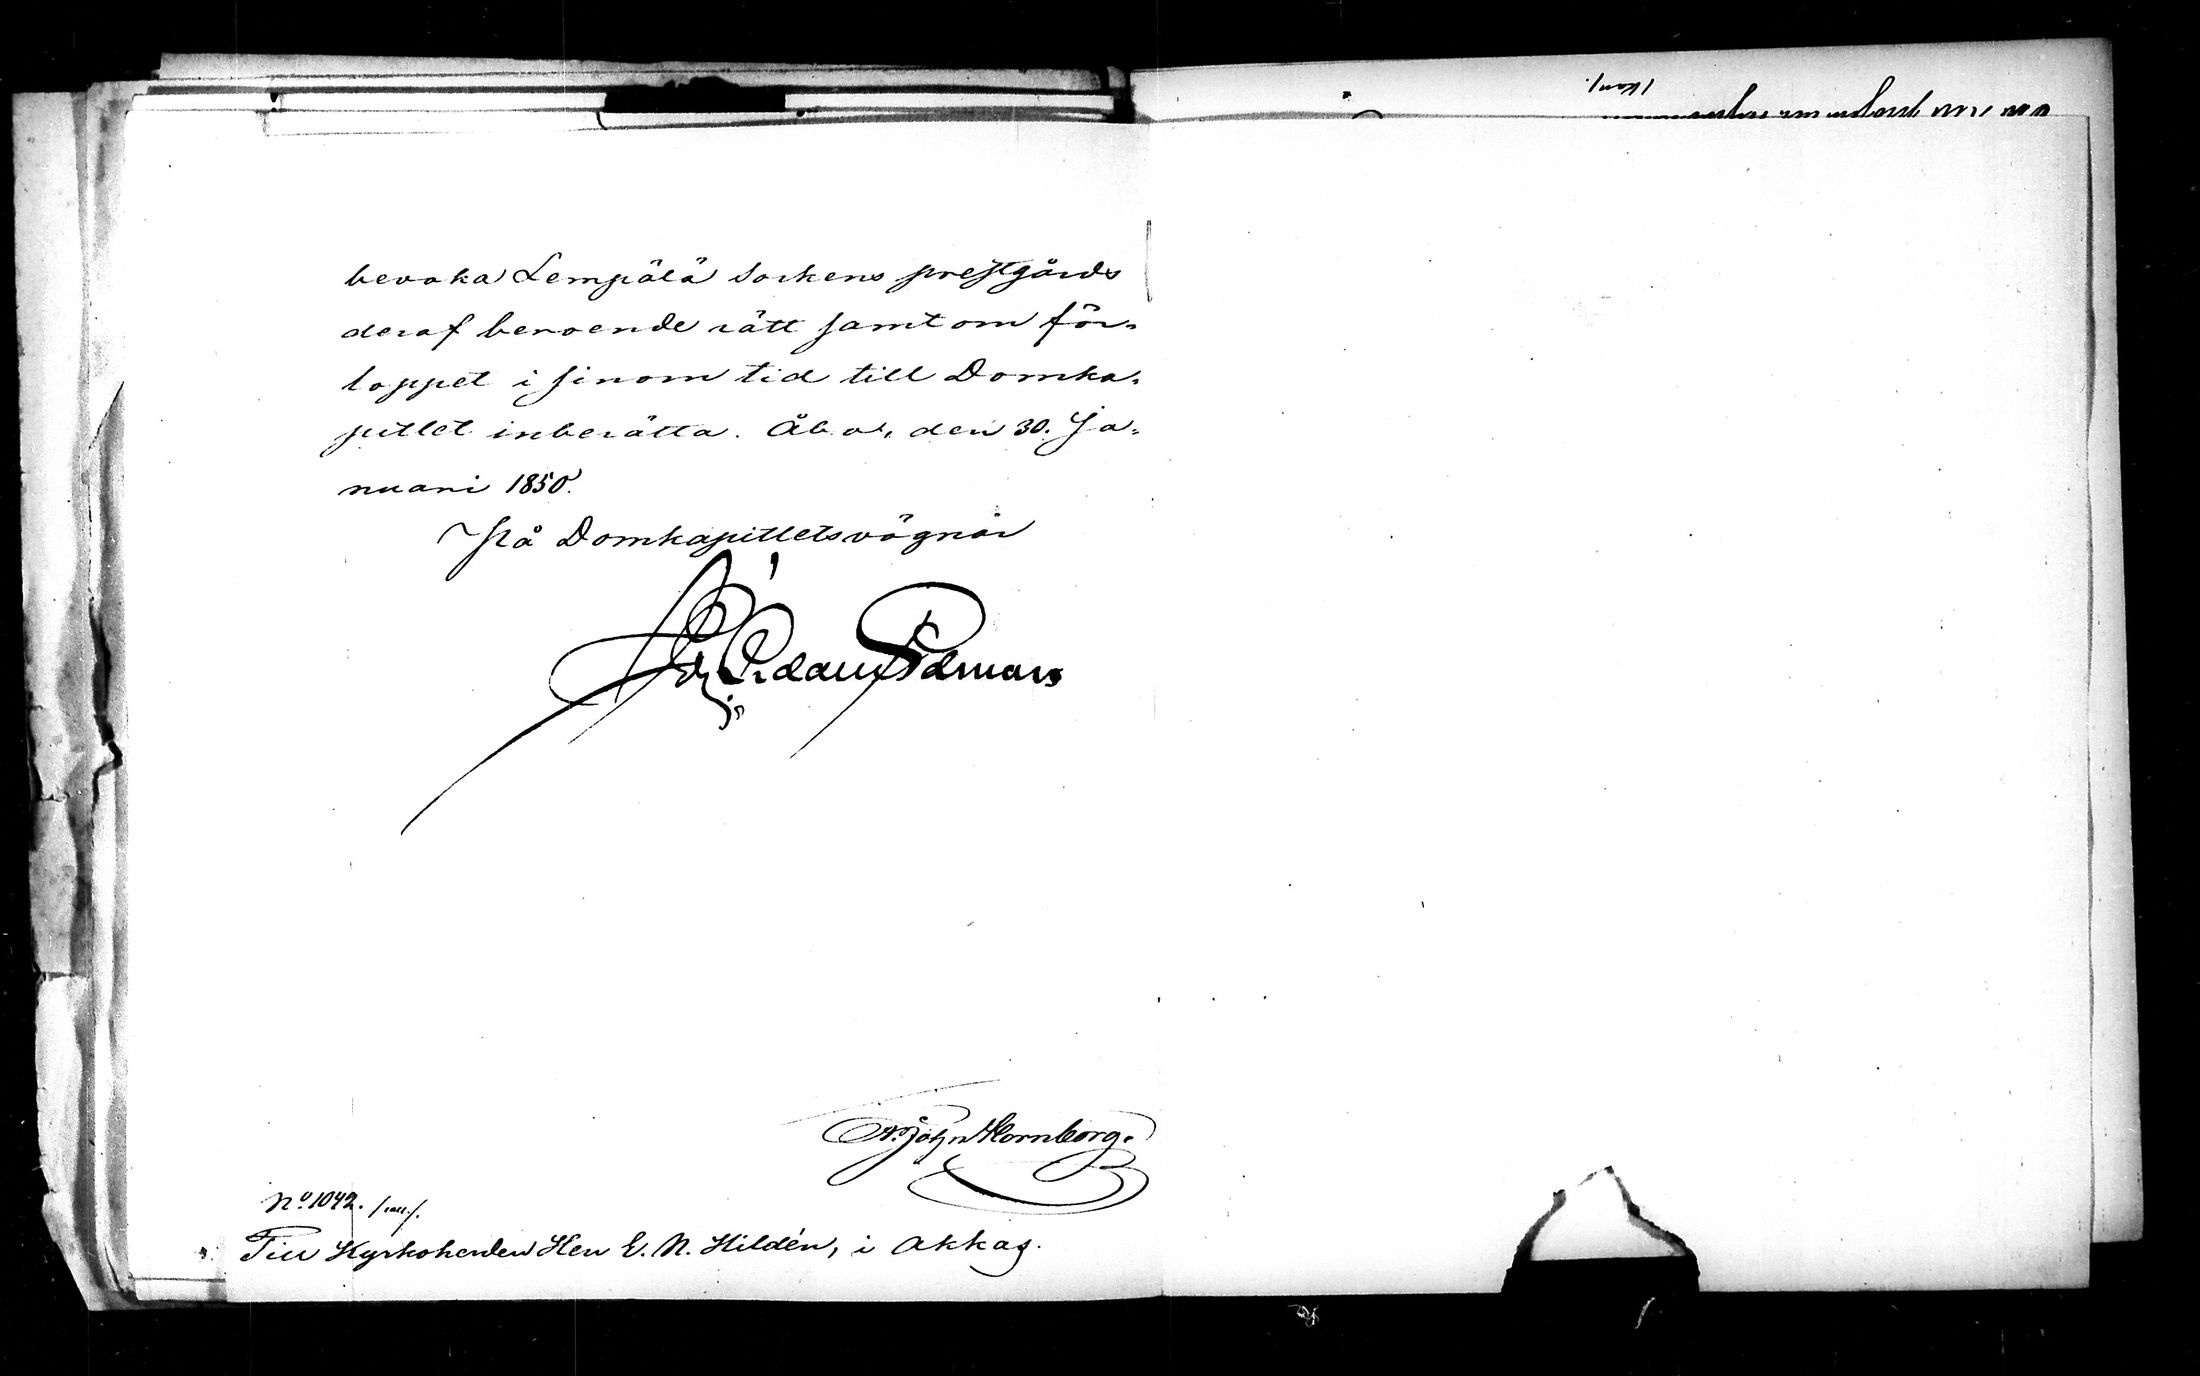 bevaka Lempälä Sockens prestgårds
deraf beroende rätt samt om för-
loppet i sinom tid till Domka-
pitlet inberätta. Åbo, den 30. Ja-
nuari 1850.
På Domkapitlets vägnar
A. John Hornborg.
No. 1042.
Till Kyrkoherden Herr E. N. Hildén, i Akkas.